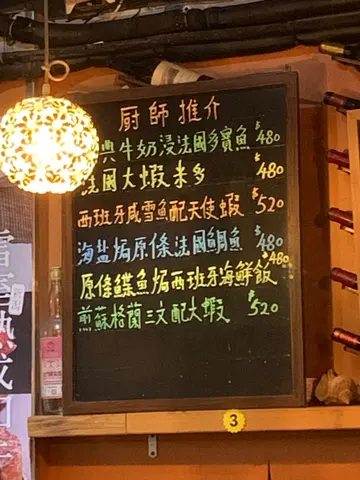 厨師推介
典牛奶浸法國多寶魚 $480
法國大蝦米多 $480
西班牙咸雪魚配天使蝦 $520
海鹽焗原條法國鯛魚 $480
原條鰈魚焗西班牙海鮮飯 $480
煎蘇格蘭三文配大蝦 $520
3